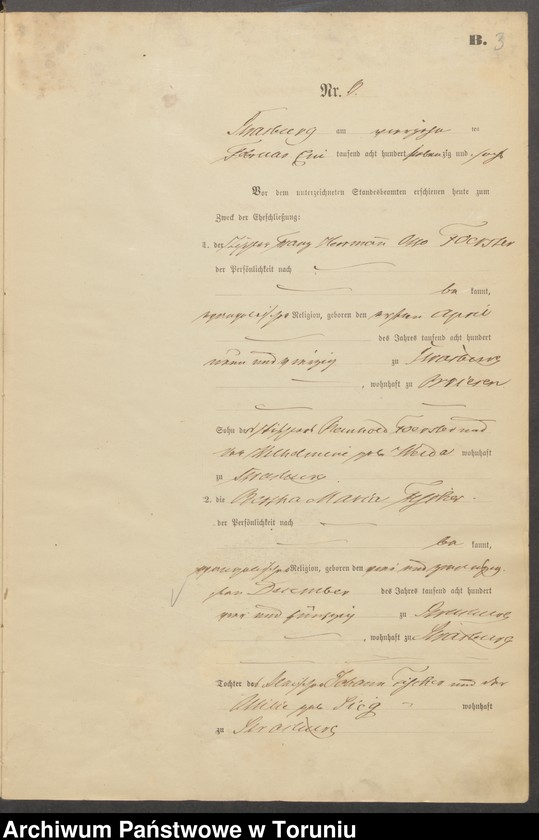 B. 3
Nr. 8.
Strasburg am vierzehn ten
Februar Ein tausend acht hundert sieben zig und sechs
Vor dem unterzeichneten Standesbeamten erschienen heute zum
Zweck der Eheschließung:
1. der Franz Herrmann Otto Foerster
der Persönlichkeit nach
be kannt,
evangelischer Religion, geboren den ersten April
des Jahres tausend acht hundert
neun und zu Strasburg
, wohnhaft zu Briesen
Sohn des Reinhold Foerster und
der Wilhelmine geb. wohnhaft
zu Strasburg
2. die Bertha Maria
der Persönlichkeit nach
be kannt,
evangelischer Religion, geboren den zwanzig
sten December des Jahres tausend acht hundert
und fünfzig zu Strasburg
, wohnhaft zu Strasburg
Tochter des Johann und der
geb. wohnhaft
zu Strasburg
Archiwum Państwowe w Toruniu